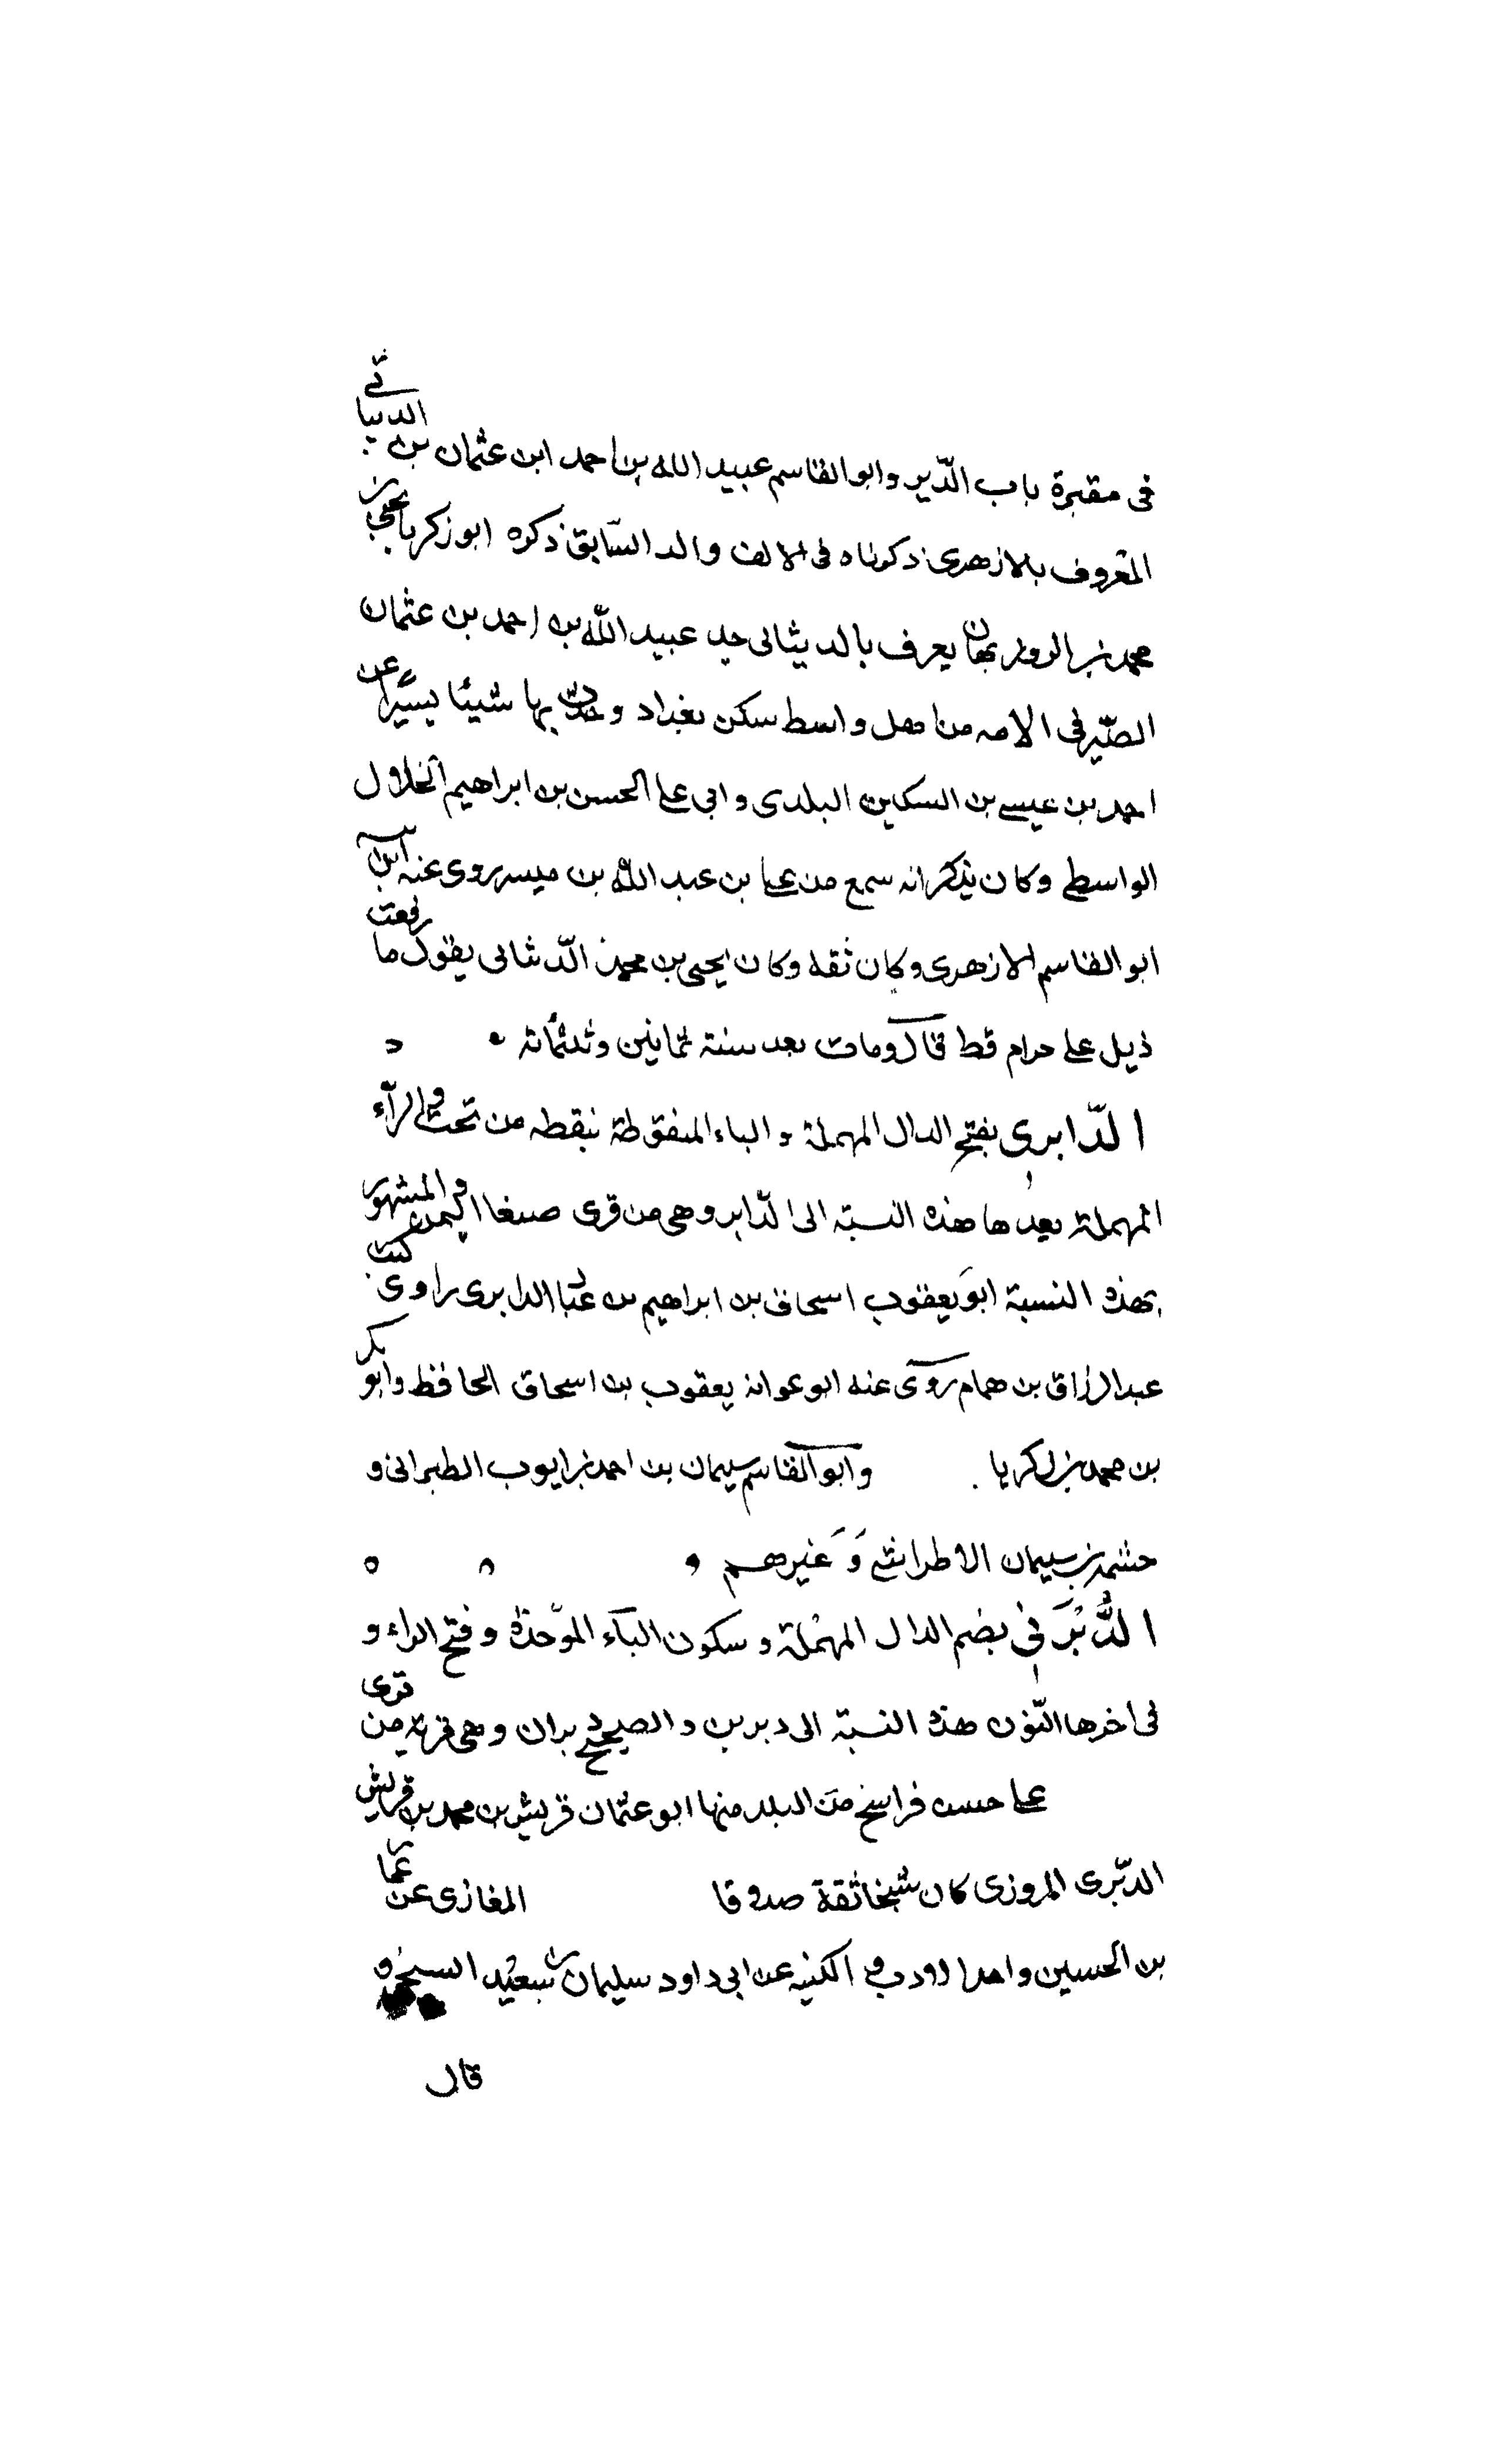 فى مقبرة باب الدّير وابو القاسم عبيد الله بن احمد ابن عثمان بن الدبيثاتى
المعروف بالازهرى ذكرناه فى الالف والد السّابق ذكره ابو زكريا يحيى بن
محمد بن الروزبهان يعرف بالديثانى جد عبيد الله بن احمد بن عثمان
الصّيرفى الامه من اهل واسط سكن بغداد وحدّث بها شيئا يسّيرا عن
احمد بن عيسى بن السكين البلدى وابى على الحسن بن ابراهيم الخلال
الواسطى وكان يذكر انه سمع من على بن عبد الله بن ميسر روى عنه ابن ابنته
ابو القاسم الازهرى وكان ثقه وكان يحيى بن محمد الدّثانى يقول ما رفعت
ذيل على حرام قط قال ومات بعد سنة ثمانين وثلثمائه
الدّابرى بفتح الدال المهملة والباء المنقوطة بنقطه من تحت والرآء
المهملة بعدها هذه النسبة الى الدّابر وهى من قرى صنعا اليمن والمشهور
بهذه النسبة ابو يعقوب اسحاق بن ابراهيم بن عباد الدابرى راوى كتب
عبد الرزاق بن همام روى عنه ابو عوانه يعقوب بن اسحاق الحافظ وابو بكر
بن محمد بن زكريا وابو القاسم سيمان بن احمد بن ايوب الطبرانى و
خثمة بن سيمان الاطرابلسى وَغيرهم
الدُّبْرَنى بضم الدال المهمْلة وسكون البآء الموّحدة وفتح الراء و
فى اخرها النّون هذه النسبة الى دبرين والصحيح دبران وهى قرية من قرى
على خمس فراسخ من البلد منها ابو عثمان قريش بن محمد بن قريش
الدبّرى المروزى كان شيخا ثقة صدوقا المغازى عن عمار
بن الحسين واهدا فى الكنيه عن ابى داود سليمان بن سعيد السنجى و
قال